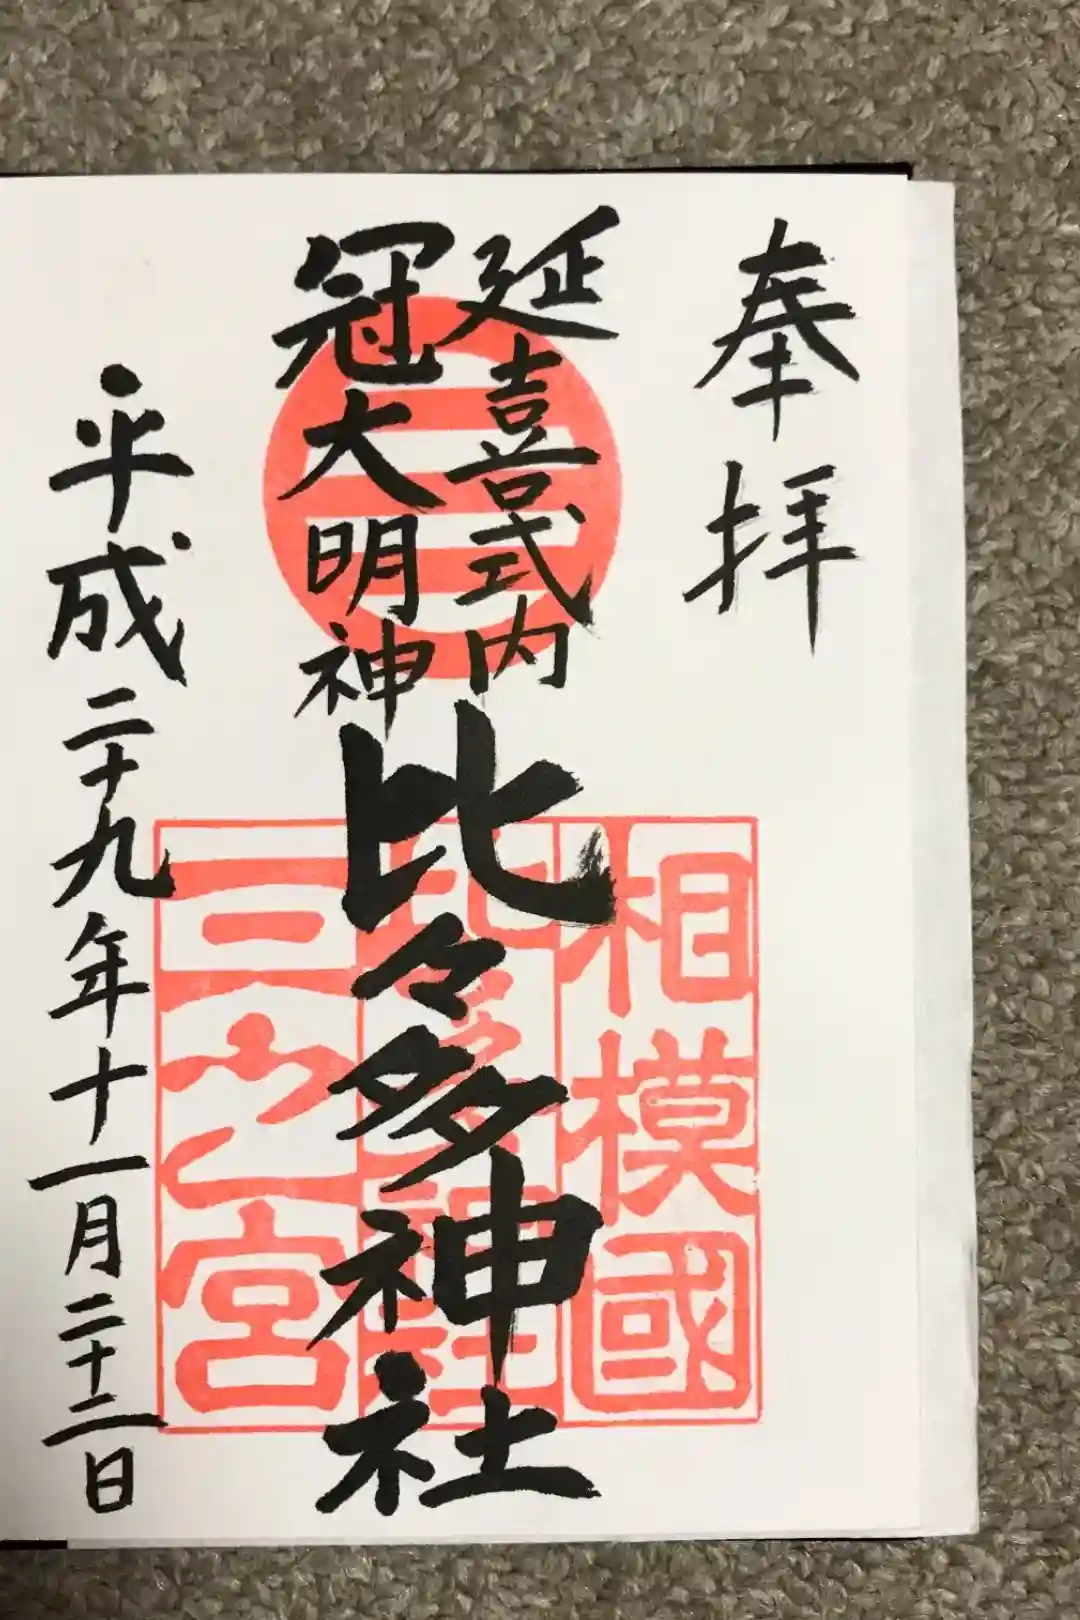 奉拝
延喜式内
冠大明神
比々多神社
平成二十九年十一月二十二日
相模國
比々多神社
三之宮